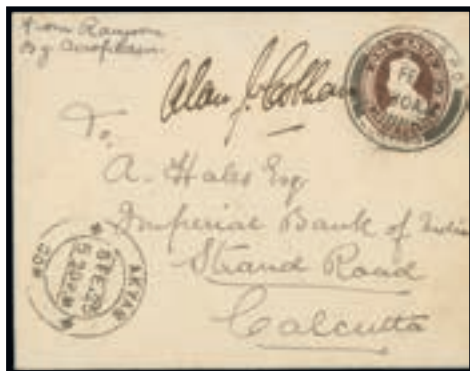 From Rangoon
By Aeroplane
Alan J. Cobham
To,
A. Hales Esq
Imperial Bank of India
Strand Road
Calcutta
AKYAB